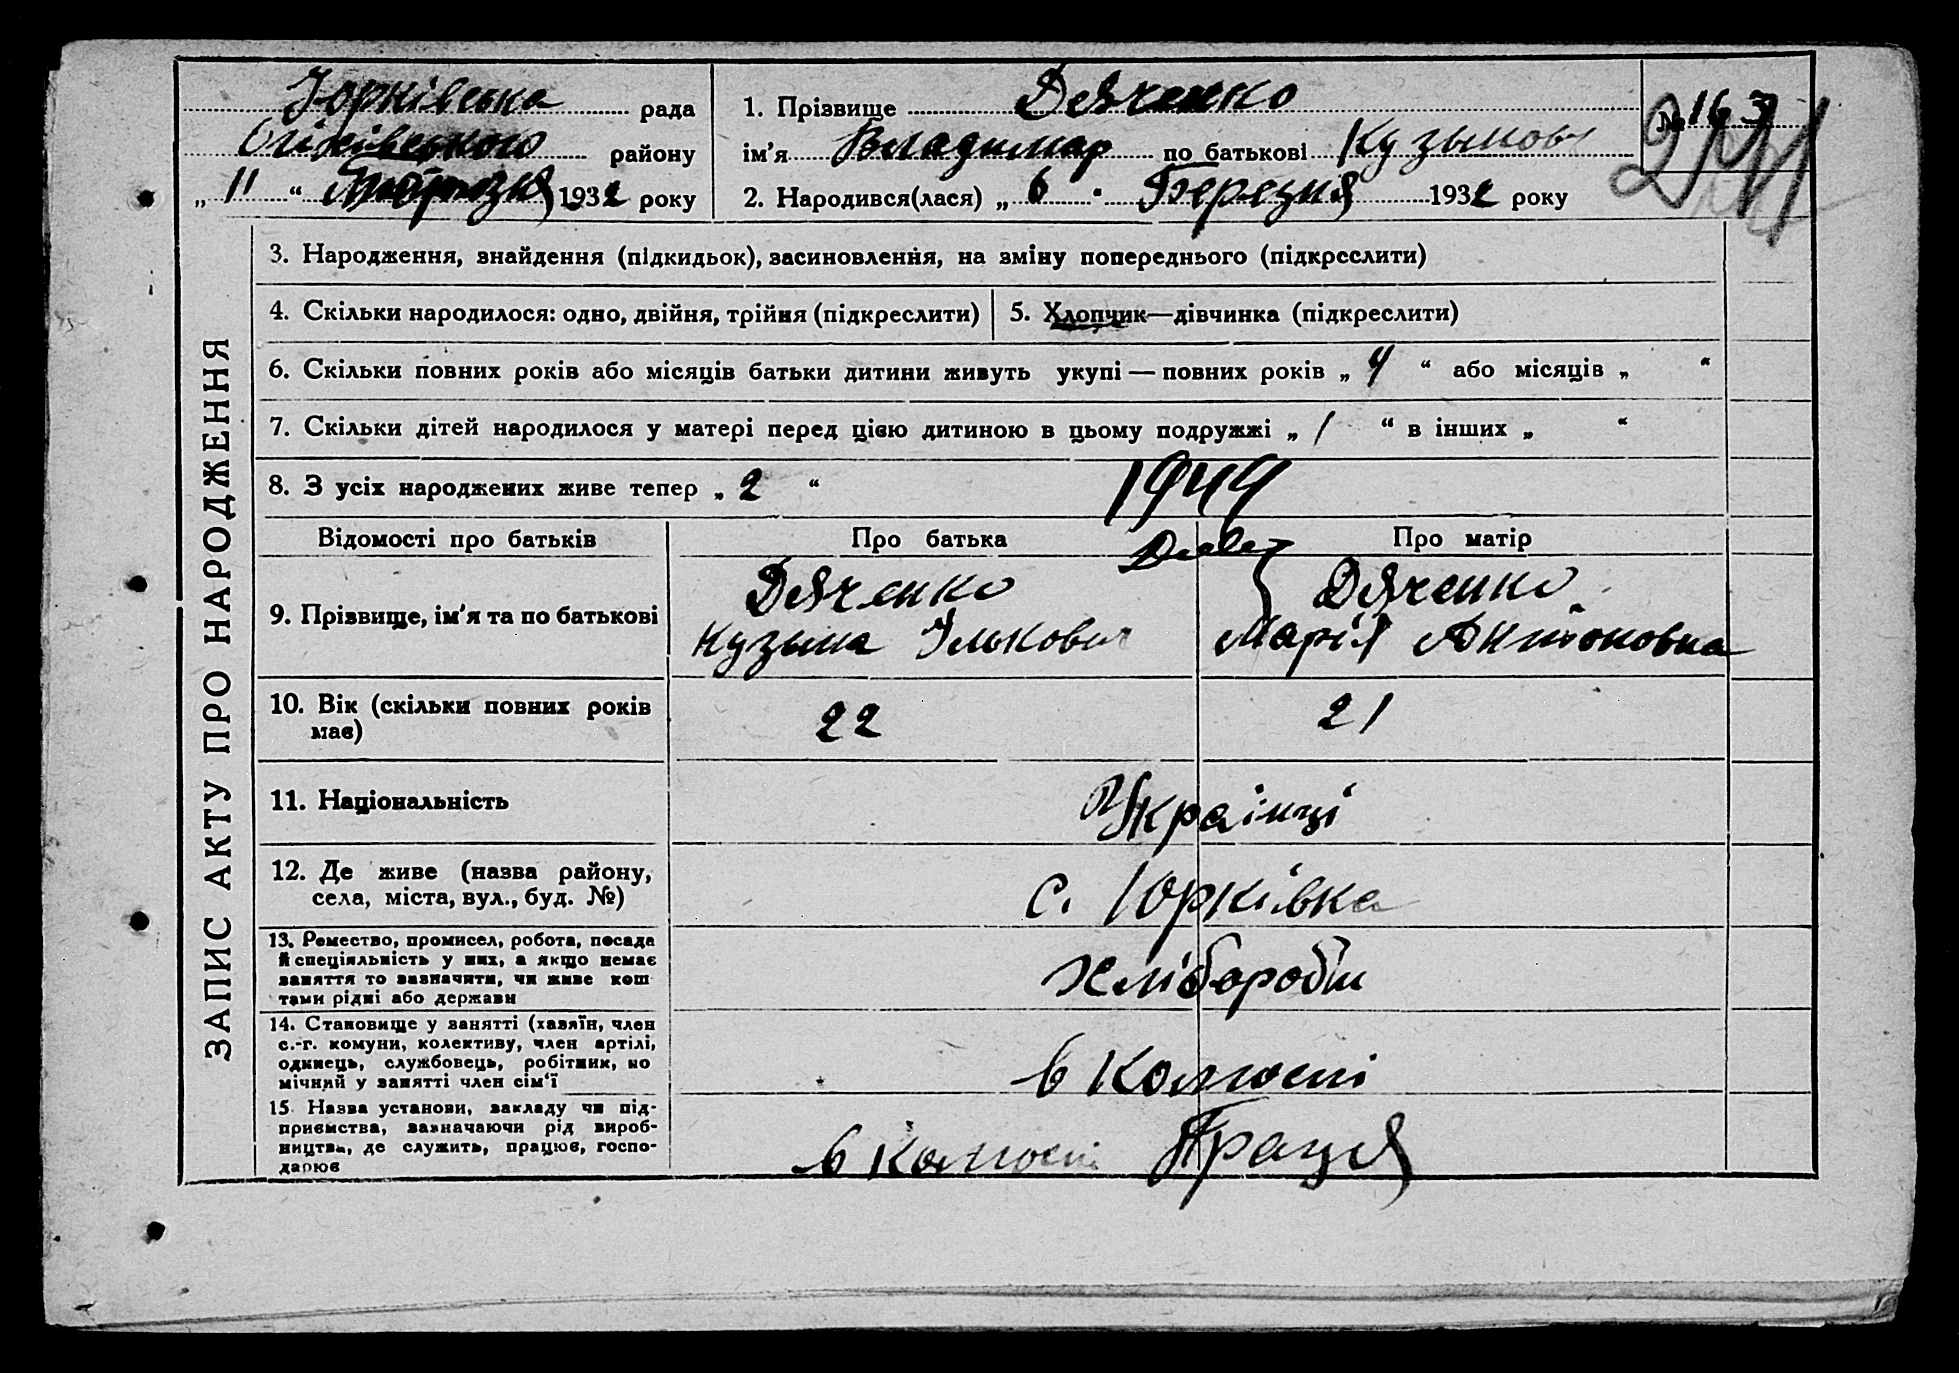 Юрківська рада
району
„ 11 “ 1932 року
1. Прізвище Дяченко
ім'я Владимар по батькові Кузьмов
2. Народився(лася) „ 6 “ Березня 1932 року
№ 163
ЗАПИС АКТУ ПРО НАРОДЖЕННЯ
3. Народження, знайдення (підкидьок), засиновлення, на зміну попереднього (підкреслити)
4. Скільки народилося: одно, двійня, трійня (підкреслити)
5. Хлопчик—дівчинка (підкреслити)
6. Скільки повних років або місяців батьки дитини живуть укупі — повних років „ 4 “ або місяців „ “
7. Скільки дітей народилося у матері перед цією дитиною в цьому подружжі „ 1 “ в інших „ “
8. З усіх народжених живе тепер „ 2 “
1949
Відомості про батьків
Про батька
Про матір
9. Прізвище, ім'я та по батькові
Дяченко
Кузьма Ількович
Дяченко
Марія Антоновна
10. Вік (скільки повних років
має)
22
21
11. Національність
Українці
12. Де живе (назва району,
села, міста, вул., буд. №)
с. Юрківка
13. Ремество, промисел, робота, посада
й спеціяльність у них, а якщо немає
заняття то зазначити, чи живе кош
тами рідні або держави
Хлібороби
14. Становище у занятті (хазяїн, член
с.-г. комуни, колективу, член артілі,
одинець, службовець, робітник, по
мічний у занятті член сім'ї
в Колгоспі
15. Назва установи, закладу чи під-
приємства, зазначаючи рід вироб-
ництва, де служить, працює, госпо-
дарює
в Колгоспі Праця